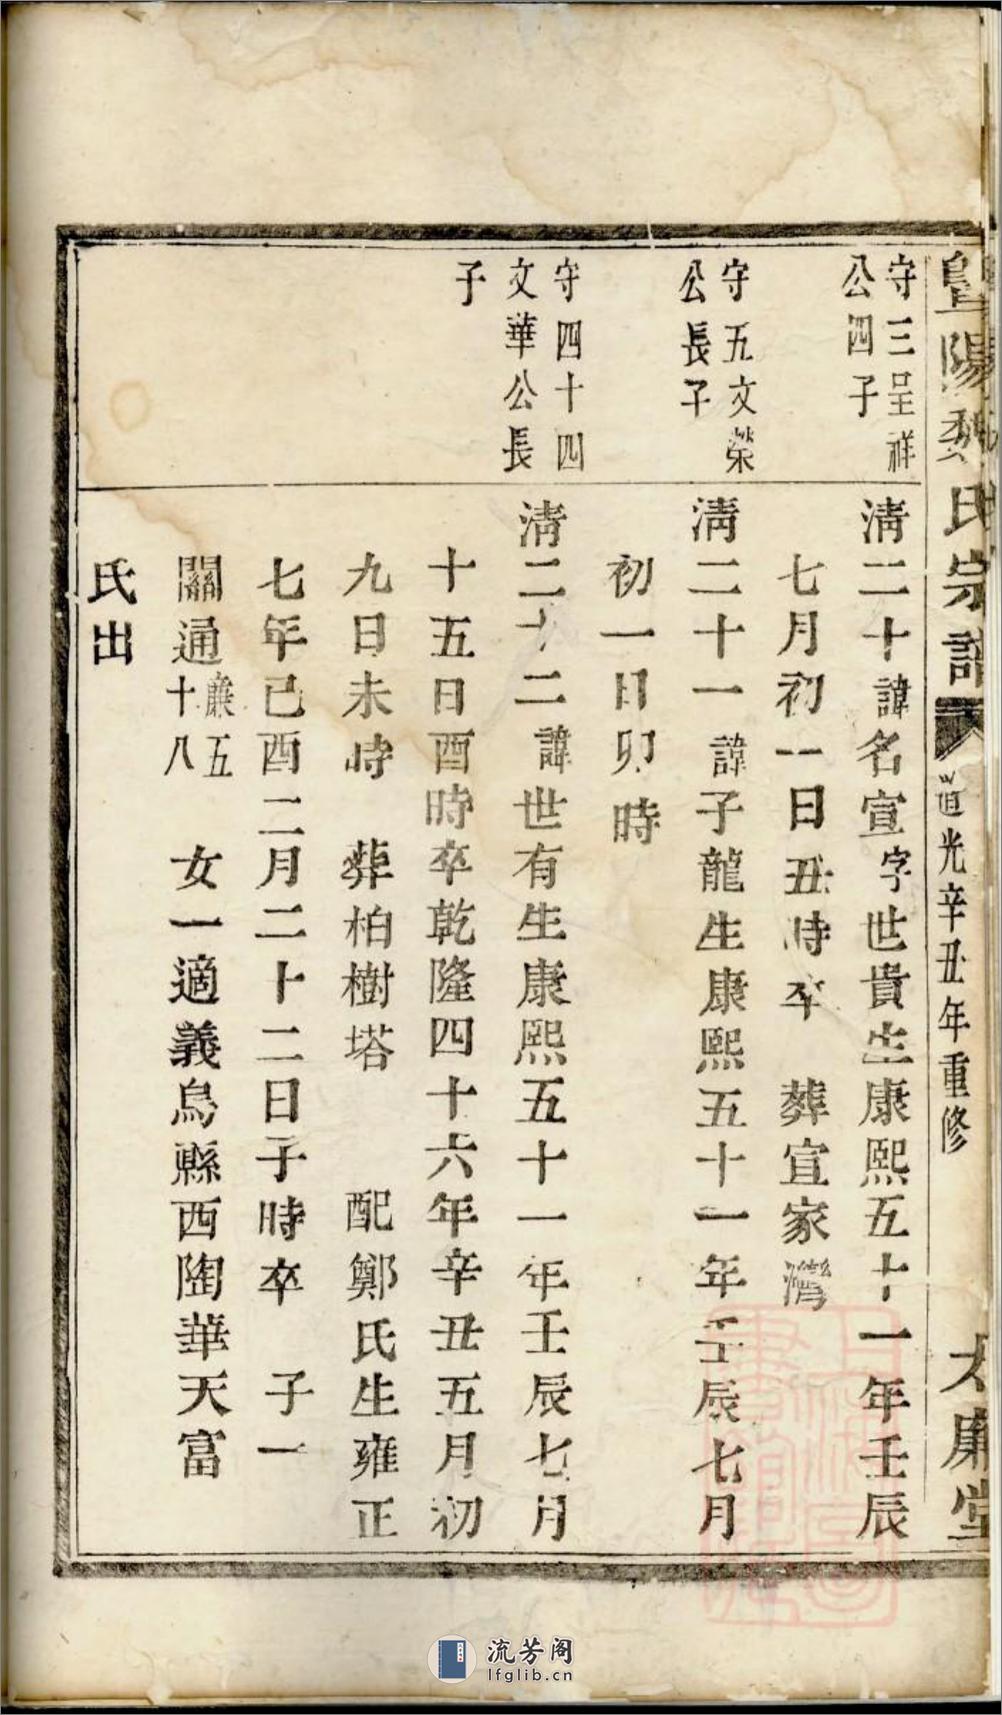 暨陽蔡氏宗譜
道光辛丑年重修
大廉堂
守三呈祥
公四子
清二十諱名宣字世貴生康熙五十一年壬辰
七月初一日丑時卒　葬宜家灣
守五文榮
公長子
清二十一諱子龍生康熙五十一年壬辰七月
初一日卯時
守四十四
文華公長
子
清二十二諱世有生康熙五十一年壬辰七月
十五日酉時卒乾隆四十六年辛丑五月初
九日未時　葬柏樹塔　配鄭氏生雍正
七年己酉二月二十二日子時卒　子一
關通廉五十八　女一適義烏縣西陶華天富
氏出
流芳阁
lfglib.cn